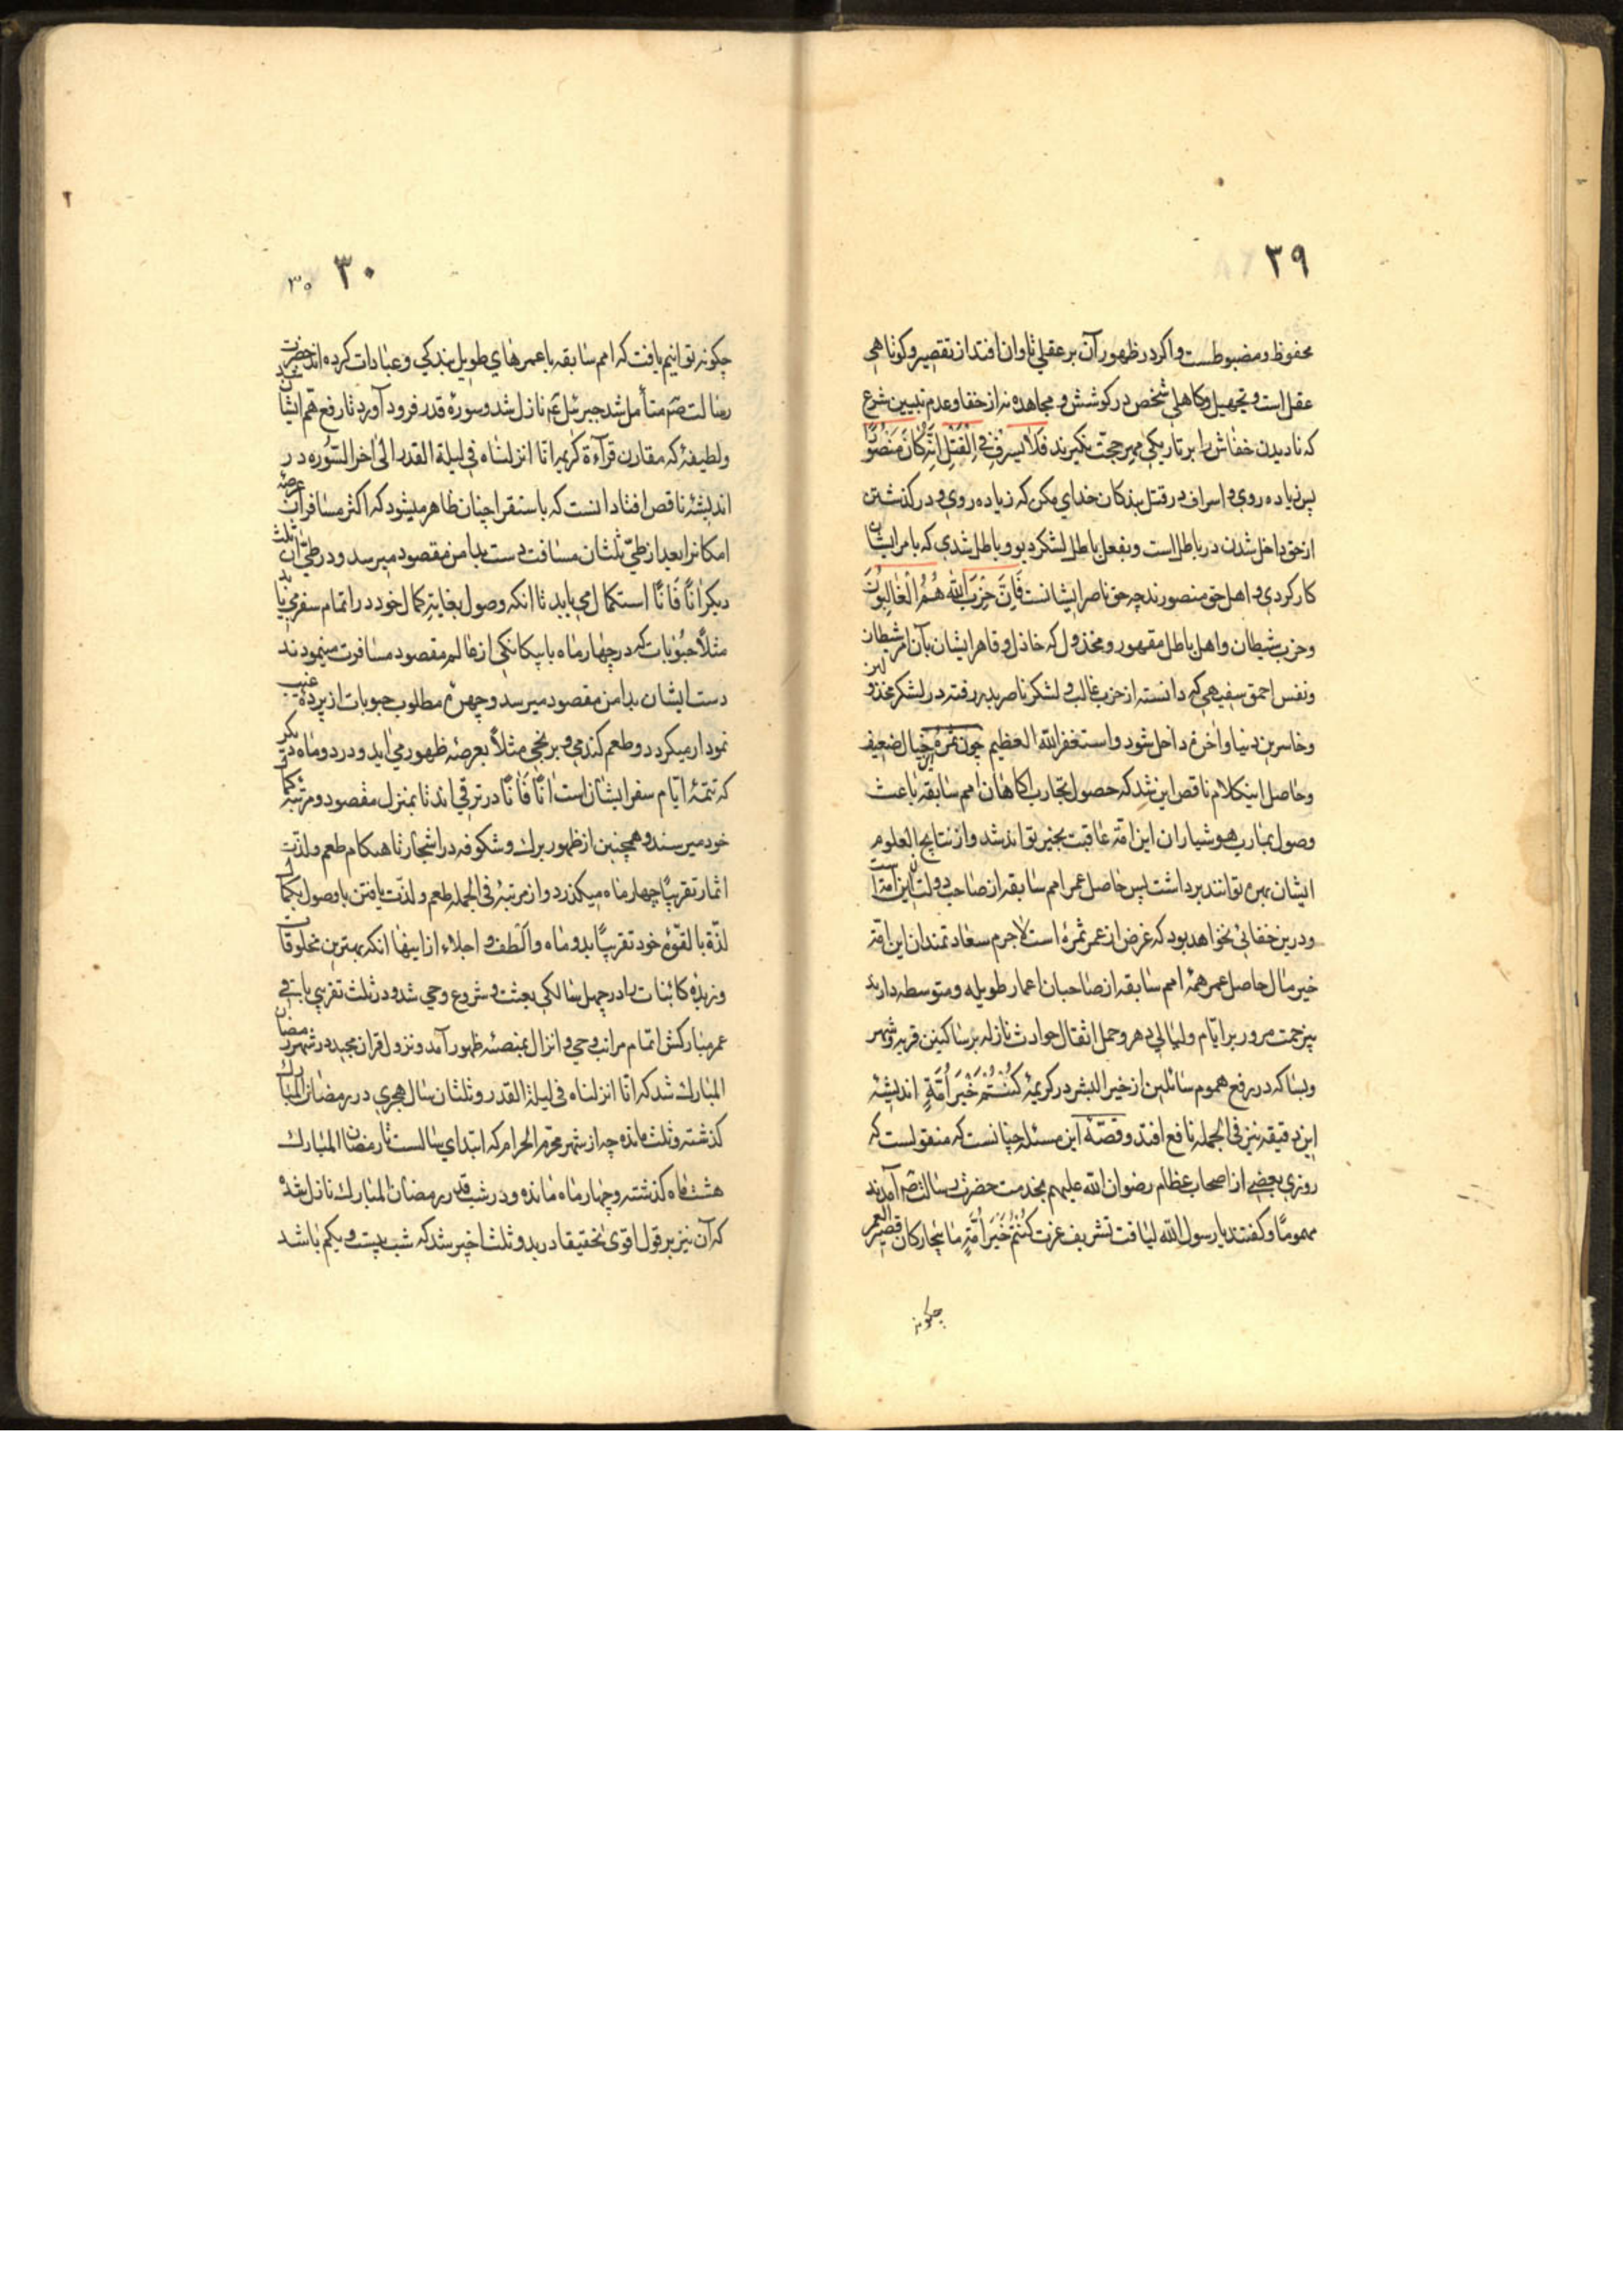 ۳۹
محفوظ و مضبوطست و اکر در ظهور آن بر عقلی تاوان افتد از تقصیر و کوتاهی
عقل است و تجهیل و کاهلی شخص در کوشش و مجاهده نه از خفا و عدم تبیین شرع
که نادیدن خفاش را بر تاریکی مهر حجت نکیرند فَلَا یُسرِفْ فِی الْقَتْلِ اِنَّهُ کَانَ مَنْصُورًا
پس زیاده روی و اسراف در قتل بندکان خدای مکن که زیاده روی و در کذشتن
از حق داخل شدن در باطل است و بفعل باطل لشکر دیو و باطل شدی که بامر ایشان
کار کردی و اهل حق منصورند چه حق ناصر ایشانست فَاِنَّ حِزْبَ اللّٰهِ هُمُ الْغَالِبُونَ
و حزب شیطان و اهل باطل مقهور و مخذول که خاذل و قاهر ایشان بآن امر شیطان
و نفس احمق سفیهی که دانسته از حزب غالب و لشکر ناصر بدر رفته در لشکر مخذولین
و خاسرین دنیا و آخرة داخل شود و استغفر الله العظیم چون ثمرهٔ خیال ضعیف
و حاصل اینکلام ناقص این شد که حصول تجارب آکاهان امم سابقه باعث
وصول بمآرب هوشیاران این امّة عاقبت بخیر تواند شد و از نتایج العلوم
ایشان بهره توانند برداشت پس حاصل عمر امم سابقه از صاحب دولتان این امتست
و درین خفائی نخواهد بود که غرض از عمر ثمرهٔ است لاجرم سعادتمندان این امّة
خیر مآل حاصل عمر همهٔ امم سابقه از صاحبان اعمار طویله و متوسطه دارند
بیزحمت مرور بر ایّام و لیالی دهر و حمل اثقال حوادث نازله بر ساکنین قریه و شهر
و بسا که در رفع هموم سائلین از خیر البشر در کریمهٔ کُنْتُمْ خَیْرَ اُمَّةٍ اندیشهٔ
این دقیقه نیز فی الجمله نافع افتد و قصّهٔ این مسئله چنانست که منقولست که
روزی بعضی از اصحاب عظام رضوان الله علیهم بخدمت حضرت رسالت صم آمدند
مهمومًا و کفتند یا رسول الله لیاقت تشریف عزت کُنْتُمْ خَیْرَ اُمَّةٍ ما بیچارکان قصیر العمر
چکونه
۳۰
۳۰
چکونه توانیم یافت که امم سابقه با عمرهای طویل بندکی و عبادات کرده اند حضرت
رسالت صم متأمل شد جبرئیل عم نازل شد و سورهٔ قدر فرود آورد تا رفع همّ ایشان شد
و لطیفهٔ که مقارن قرآءة کریمه انّا انزلناه فی لیلة القدر الی آخر السّوره در
اندیشهٔ ناقص افتاد انست که باستقرا چنان ظاهر میشود که اکثر مسافران عرصهٔ
امکانرا بعد از طیّ ثلثان مسافت دست بدامن مقصود میرسد و در طیّ آن ثلث
دیکر اٰنًا فَاٰنًا استکمال می یابد تا انکه وصول بغایة کمال خود در اتمام سفر می یابند
مثلًا حبوبات که در چهار ماه با پیکانکی از عالم مقصود مسافرت مینمودند
دست ایشان بدامن مقصود میرسد و چهرهٔ مطلوب حبوبات از پردهٔ غیب
نمودار میکردد و طعم کندمی و برنجی مثلًا بعرصهٔ ظهور می آید و در دو ماه دیکر
که تتمّهٔ ایّام سفر ایشان است اٰنًا فَاٰنًا در ترقی اند تا بمنزل مقصود و مرتبهٔ کمال
خود میرسند و همچنین از ظهور برك و شکوفه در اشجار تا هنکام طعم و لذّت
اثمار تقریبًا چهار ماه میکذرد و از مرتبهٔ فی الجمله طعم و لذّت یافتن با وصول بکمال
لذّة بالقوّهٔ خود تقریبًا بدو ماه و الطف و اجلاء از اینها انکه بهترین مخلوقات
و زبدهٔ کائنات را در چهل سالکی بعثت و شروع وحی شد و در ثلث تقریبی باقی
عمر مبارکش اتمام مراتب وحی و انزال بمنصّهٔ ظهور آمد و نزول قران مجید در شهر رمضان
المبارك شد که انّا انزلناه فی لیلة القدر و ثلثان سال هجری در رمضان المبارك
کذشته و ثلث مانده چه از شهر محرّم الحرام که ابتدای سالست تا رمضان المبارك
هشت ماه کذشته و چهار ماه مانده و در شب قدر رمضان المبارك نازل شده
که آن نیز بر قول اقوی تحقیقا در بدو ثلث اخیر شد که شب بیست و یکم باشد